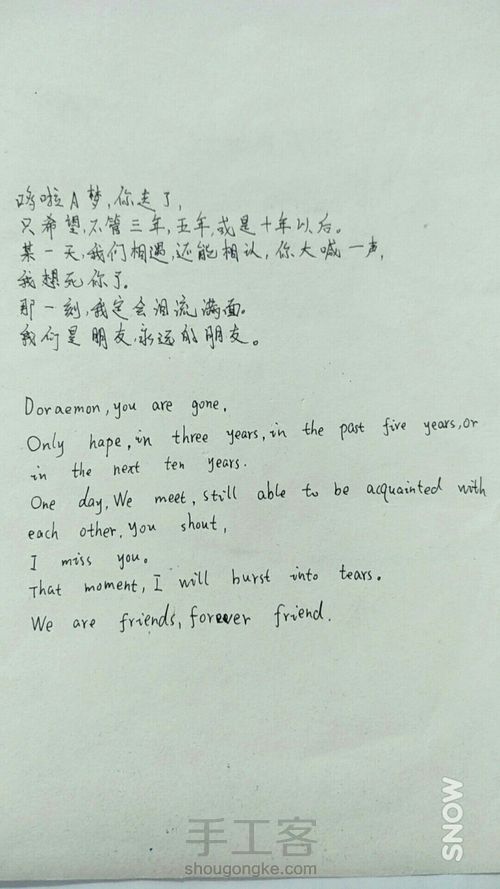 哆啦A梦,你走了,
只希望,不管三年,五年,或是十年以后。
某一天,我们相遇,还能相认,你大喊一声,
我想死你了。
那一刻,我定会泪流满面。
我们是朋友,永远的朋友。
Doraemon, you are gone.
Only hape, in three years, in the past five years, or
in the next ten years.
One day, We meet, still able to be acquainted with
each other, you shout,
I miss you。
That moment, I will burst into tears.
We are friends, forever friend.
SNOW
手工客
shougongke.com